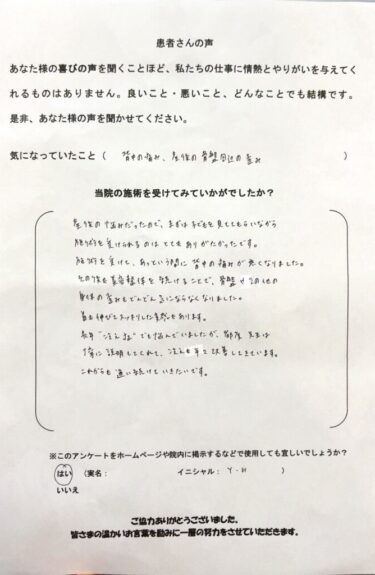 患者さんの声
あなた様の喜びの声を聞くことほど、私たちの仕事に情熱とやりがいを与えてく
れるものはありません。良いこと・悪いこと、どんなことでも結構です。
是非、あなた様の声を聞かせてください。
気になっていたこと（ 背中の痛み、産後の骨盤周辺の歪み ）
当院の施術を受けてみていかがでしたか？
産後の悩みだったので、まずは子どもを見ててもらいながら
施術を受けられるのはとてもありがたかったです。
施術を受けて、あっという間に背中の痛みが無くなりました。
その後も 整体を続けることで、骨盤やその他の
身体の歪みもどんどん気にならなくなりました。
首も伸びてスッキリした もあります。
長年"冷え性"でも悩んでいましたが、 先生は
に説明してくれて、冷えも 改善してきています。
これからも通い続けていきたいです。
※このアンケートをホームページや院内に掲示するなどで使用しても宜しいでしょうか？
はい （実名： イニシャル： Y・H ）
いいえ
ご協力ありがとうございました。
皆さまの温かいお言葉を励みに一層の努力をさせていただきます。